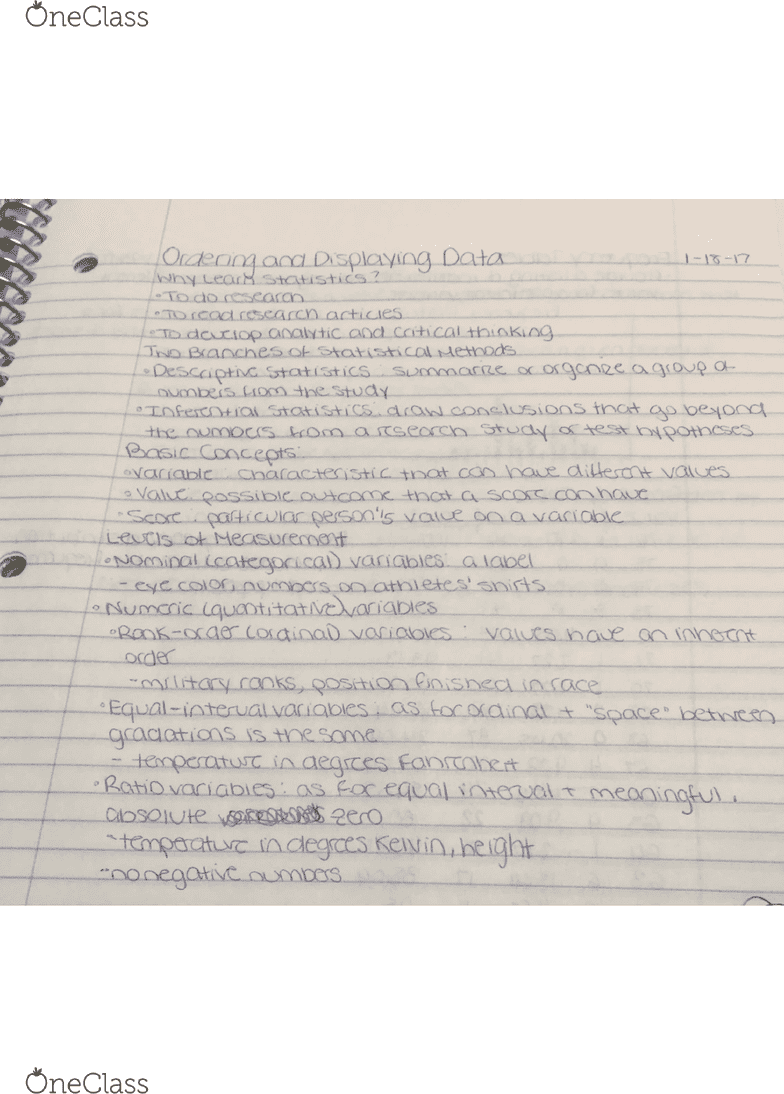 OneClass
Ordering and Displaying Data 1-18-17
Why Learn Statistics?
•To do research
•To read research articles
•To develop analytic and critical thinking
Two Branches of Statistical Methods
•Descriptive statistics: summarize or organize a group of
numbers from the study
•Inferential statistics: draw conclusions that go beyond
the numbers from a research study or test hypotheses
Basic Concepts:
•Variable: characteristic that can have different values
•Value: possible outcome that a score can have
•Score: particular person's value on a variable
Levels of Measurement
•Nominal (categorical) variables: a label
-eye color, numbers on athletes' shirts
•Numeric (quantitative) variables
•Rank-order (ordinal) variables: values have an inherent
order
-military ranks, position finished in race
•Equal-interval variables: as for ordinal + "space" between
gradations is the same
- temperature in degrees Fahrenheit
•Ratio variables: as for equal interval + meaningful,
absolute zero
-temperature in degrees Kelvin, height
-no negative numbers
OneClass